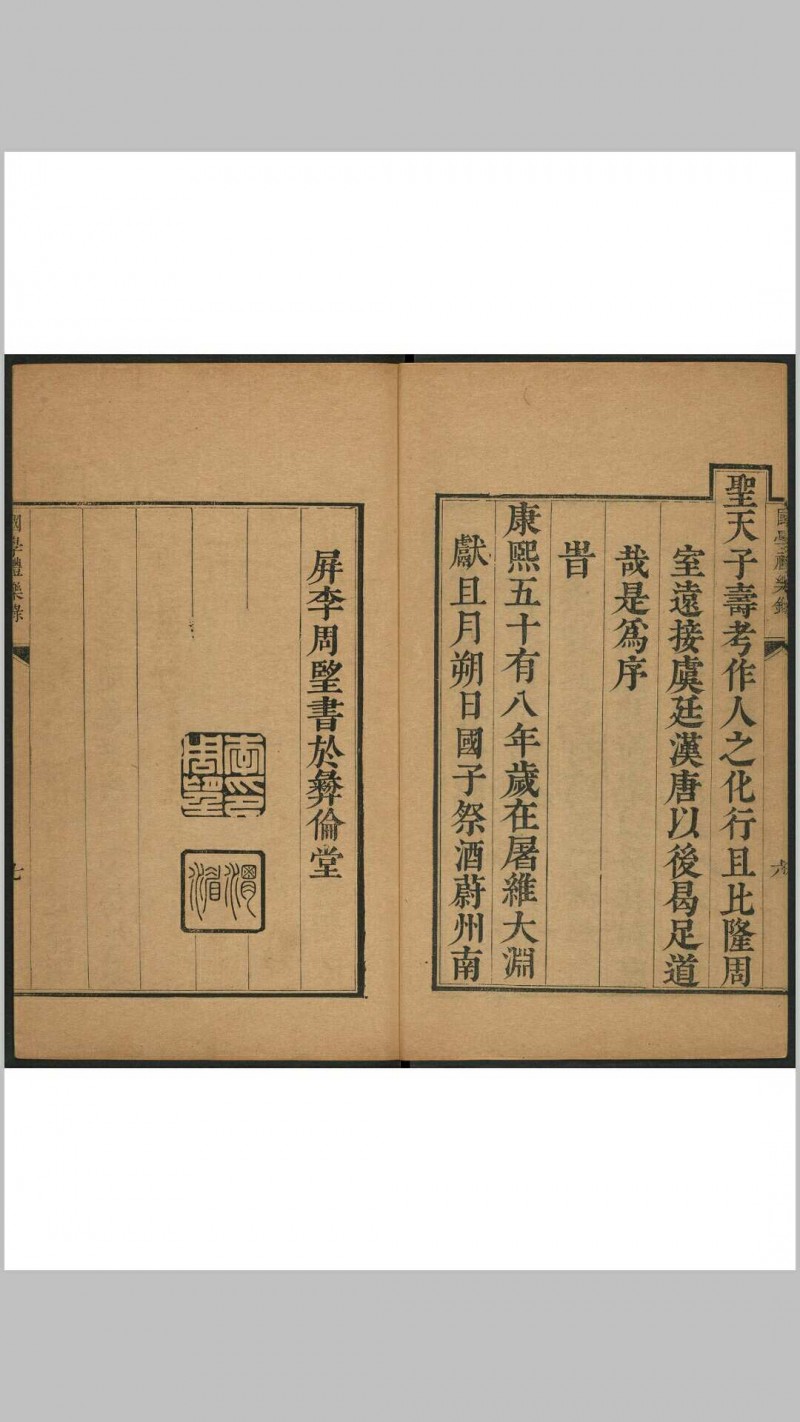 國學禮樂錄
六
聖天子壽考作人之化行且比隆周
室遠接虞廷漢唐以後曷足道
哉是爲序
旹
康熙五十有八年歲在屠維大淵
獻且月朔日國子祭酒蔚州南
屛李周望書於彝倫堂
李周望印
渭湄
國學禮樂錄
七